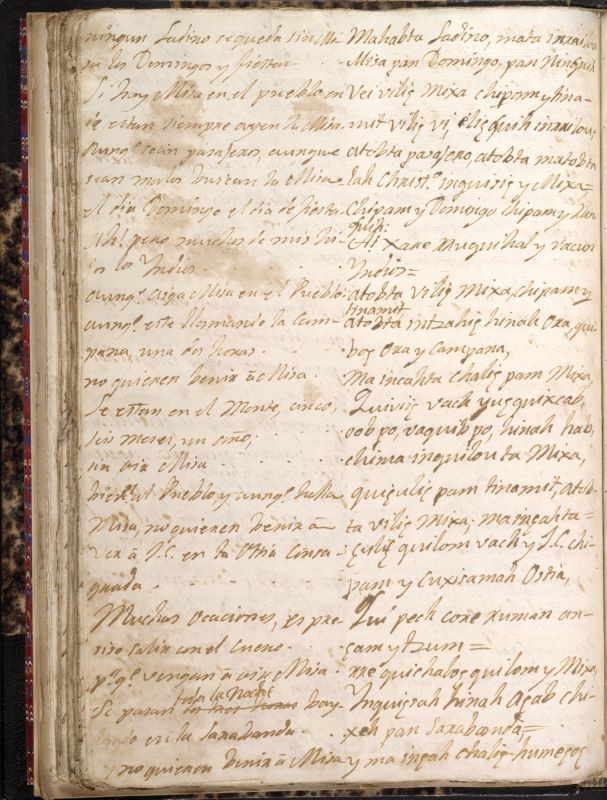 ningun Ladino se queda sin Missa
los Domingos y fiestas
Si hay Missa en el pueblo en
q̃ estan siempre oyen la Missa
Aunq̃ sean pasajeros, aunque
sean malos buscan la Missa
el dia Domingo el dia de fiesta
Ah! pero muchos de mis hi-
jos los Yndios
aunq̃ aiga Missa en el Pueblo
aunq̃ este llamando la Cam-
pana, una dos horas
no quieren benir â Missa
Se estan en el Monte, cinco,
seis meses, un año,
sin oir Missa
bienẽ al Pueblo y aunq̃ halla
Misa, no quieren benir â
ver â J.C. en la Ostia Consa-
grada
Muchas ocaciones, es pre-
siso salir con el cuero
pª q̃ vengan â oir Missa
Se pasan toda la Noche bay-
lando en la Sarabanda
y no quieren benir â Missa
Mahabta Ladino, mata inxnilou
Misa pan Domingo, pan Nimaquih
Vei vilic Mixa chipam y tina-
mit vilic vi elic quih inxnilou
atobta pasajero, atobta matobta
lah Christº inquisic y Mixa
Chipam y Domingo chipam y Nim
quih
At xare muquihal y vacun
Yndios
atobta vilic Mixa, chipam y
tinamit
atobta intzahic hinah Ora, qui-
bog Ora y Campana,
Ma incahta chalic pam Mixa,
Quiviic vach yucquixcab,
oob po, vaquib po, hinah hab,
chima inquilouta Mixa,
quiculic pam tinamit, atob-
ta vilic Mixa; ma incahta
culic quilom vach y J.C. chi-
pam y Cuxlamah Ostia,
Qui pech core ruman an-
cam y tzum
xre quichaloc quilom y Mixa
Ynquicrah hinah Acab chi-
xeh pan Saxabaonda
y ma incah chalic humecoc